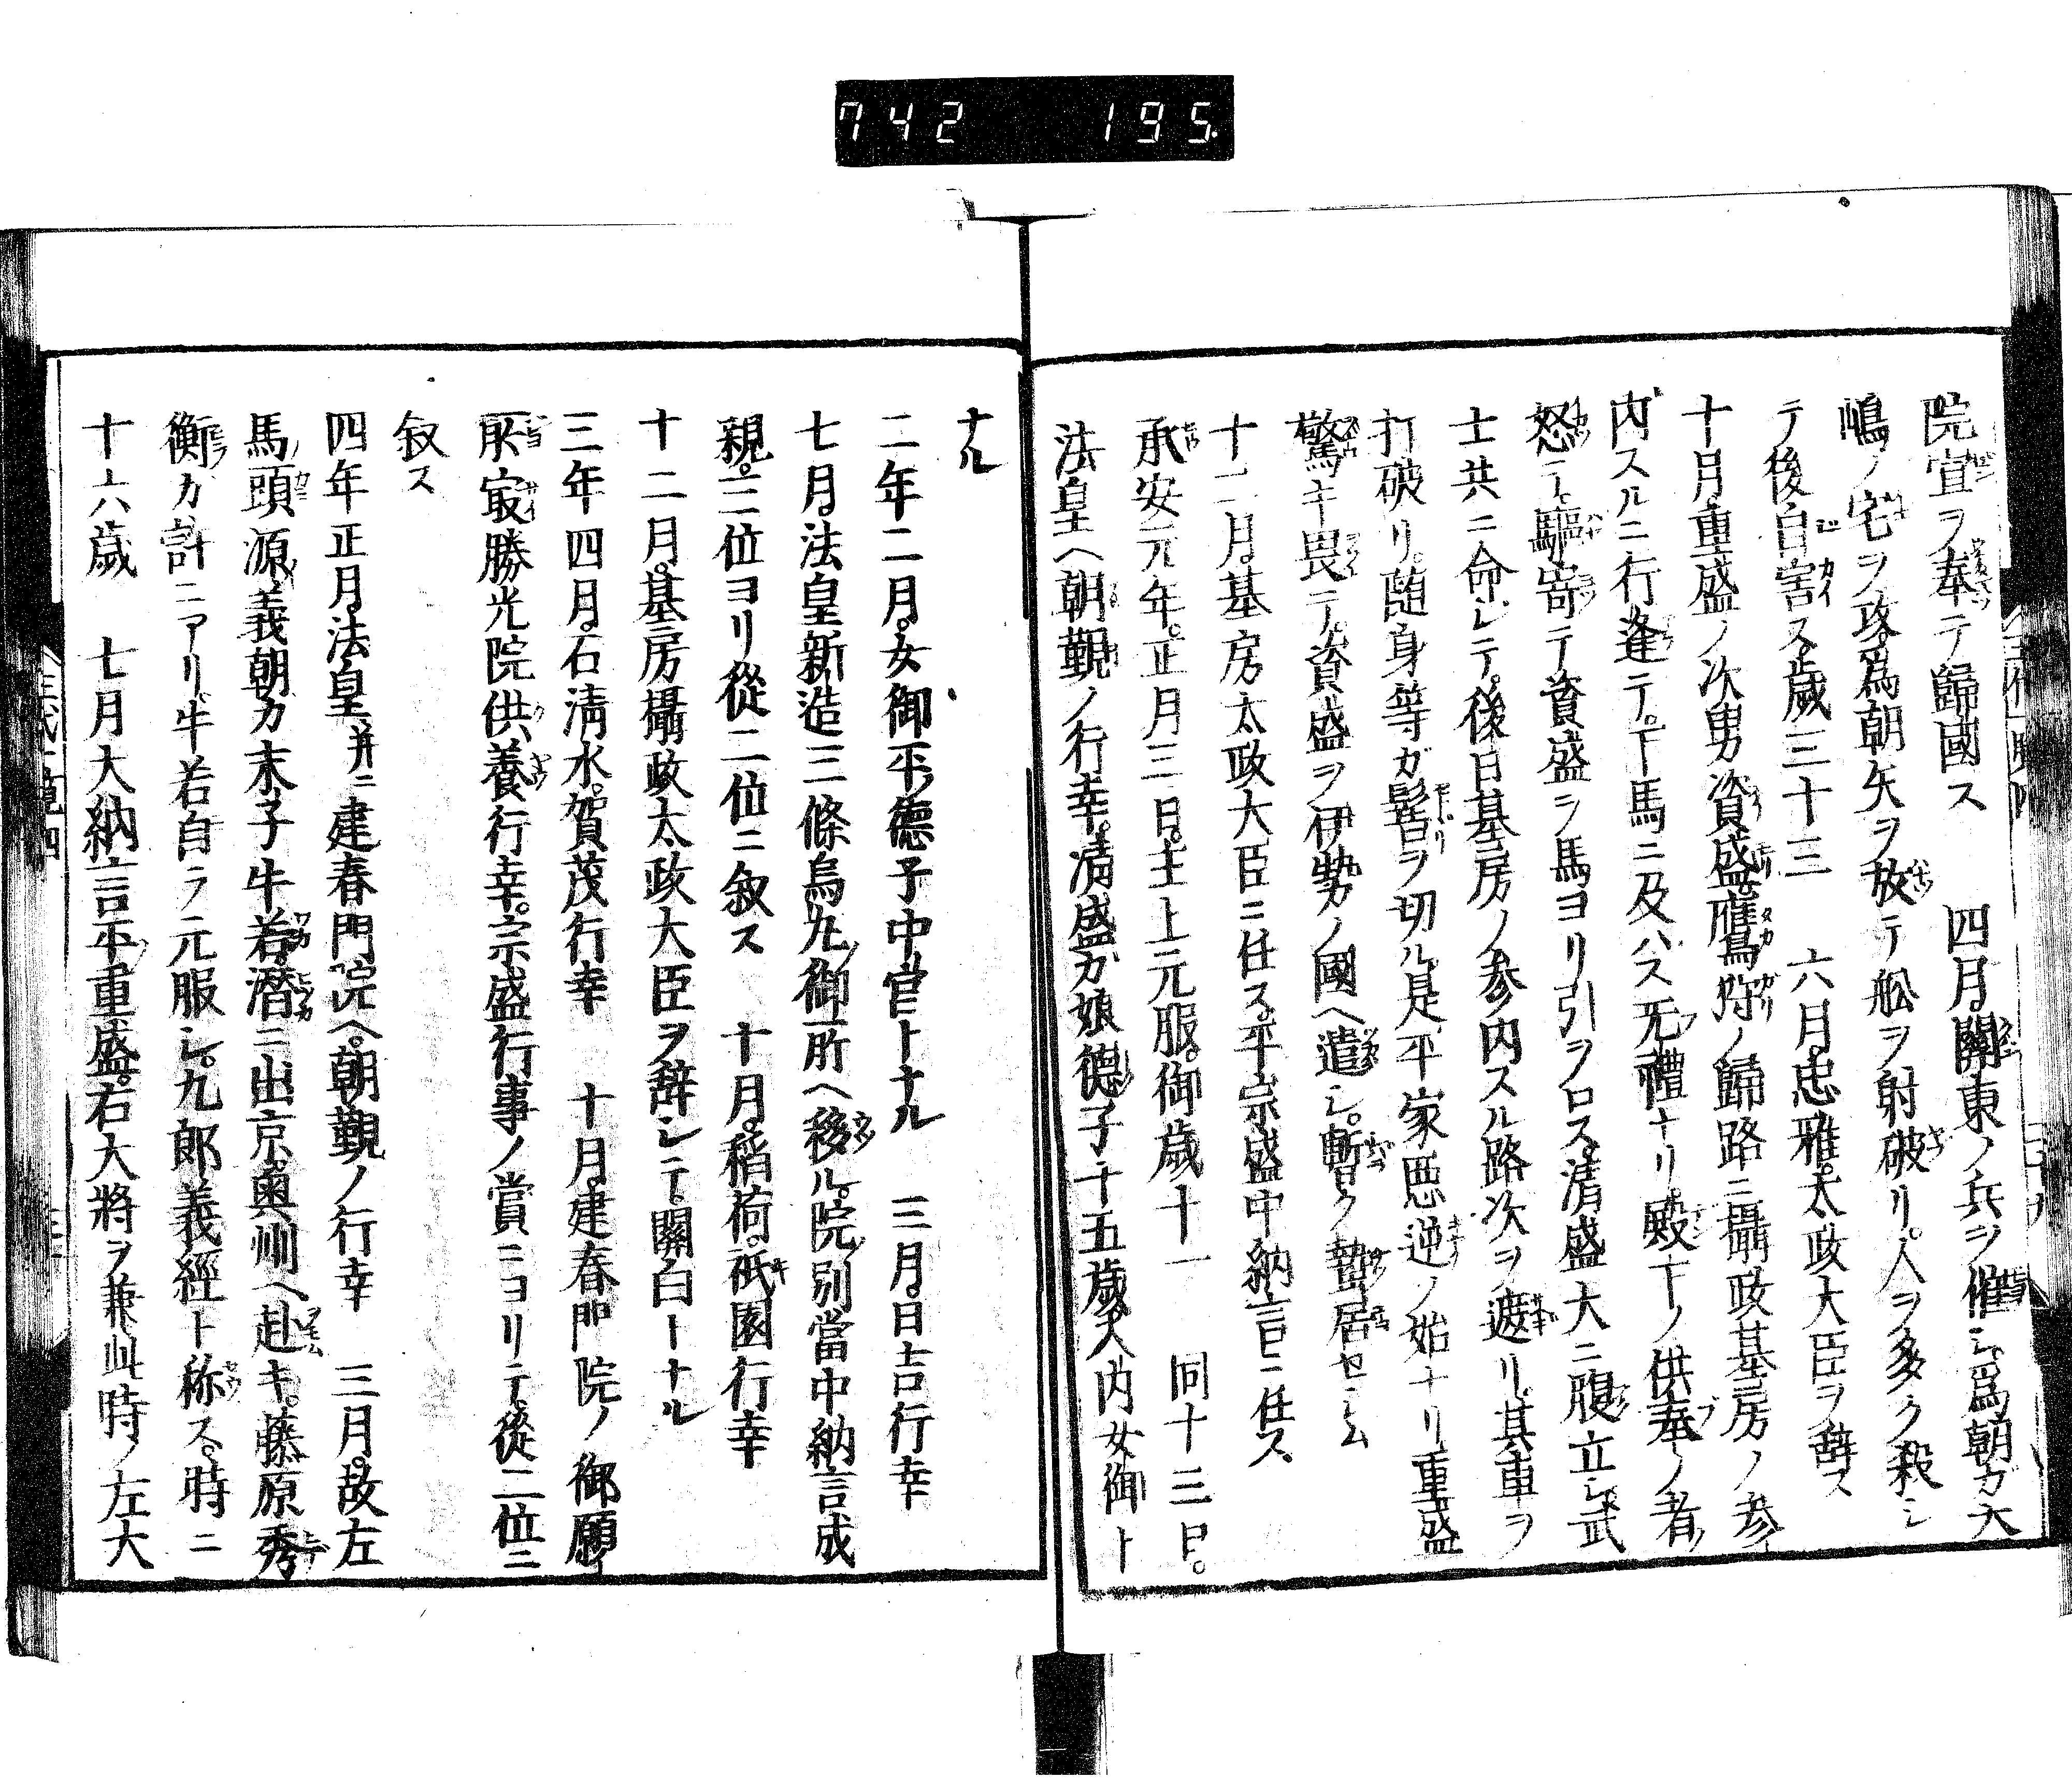 742 195
院宣ヲ奉テ歸國ス 四月關東ノ兵ヲ催シ爲朝カ大
嶋ノ宅ヲ攻爲朝矢ヲ放テ舩ヲ射破リ人ヲ多ク殺シ
テ後自害ス歳三十三 六月忠雅太政大臣ヲ辞ス
十月重盛ノ次男資盛鷹狩ノ歸路ニ攝政基房ノ参
内スルニ行逢テ下馬ニ及ハス无禮ナリ殿下ノ供奉ノ者
怒テ驅寄テ資盛ヲ馬ヨリ引ヲロス清盛大ニ腹立シ武
士共ニ命レテ後日基房ノ参内スル路次ヲ遮リ其車ヲ
打破リ随身等ガ髻ヲ切ル是平家悪逆ノ始ナリ重盛
驚キ畏テ資盛ヲ伊勢ノ國ヘ遣シ暫ク蟄居セシム
十二月基房太政大臣ニ任ス平宗盛中納言ニ任ス
承安元年正月三日主上元服御歳十一 同十三日
法皇ヘ朝覲ノ行幸清盛カ娘德子十五歳入内女御ト
ナル
二年二月女御平德子中宮トナル 三月日吉行幸
七月法皇新造三條烏丸御所ヘ移ル院別當中納言成
親三位ヨリ從二位ニ叙ス 十月稲荷祇園行幸
十二月基房攝政太政大臣ヲ辞シテ關白トナル
三年四月石清水賀茂行幸 十月建春門院ノ御願
所寂勝光院供養行幸宗盛行事ノ賞ニヨリテ從二位ニ
叙ス
四年正月法皇并ニ建春門院ヘ朝覲ノ行幸 三月故左
馬頭源義朝カ末子牛若潜ニ出京奥州ヘ赴キ藤原秀
衡カ許ニアリ牛若自ラ元服シ九郎義經ト称ス時ニ
十六歳 七月大納言平重盛右大將ヲ兼此時ノ左大